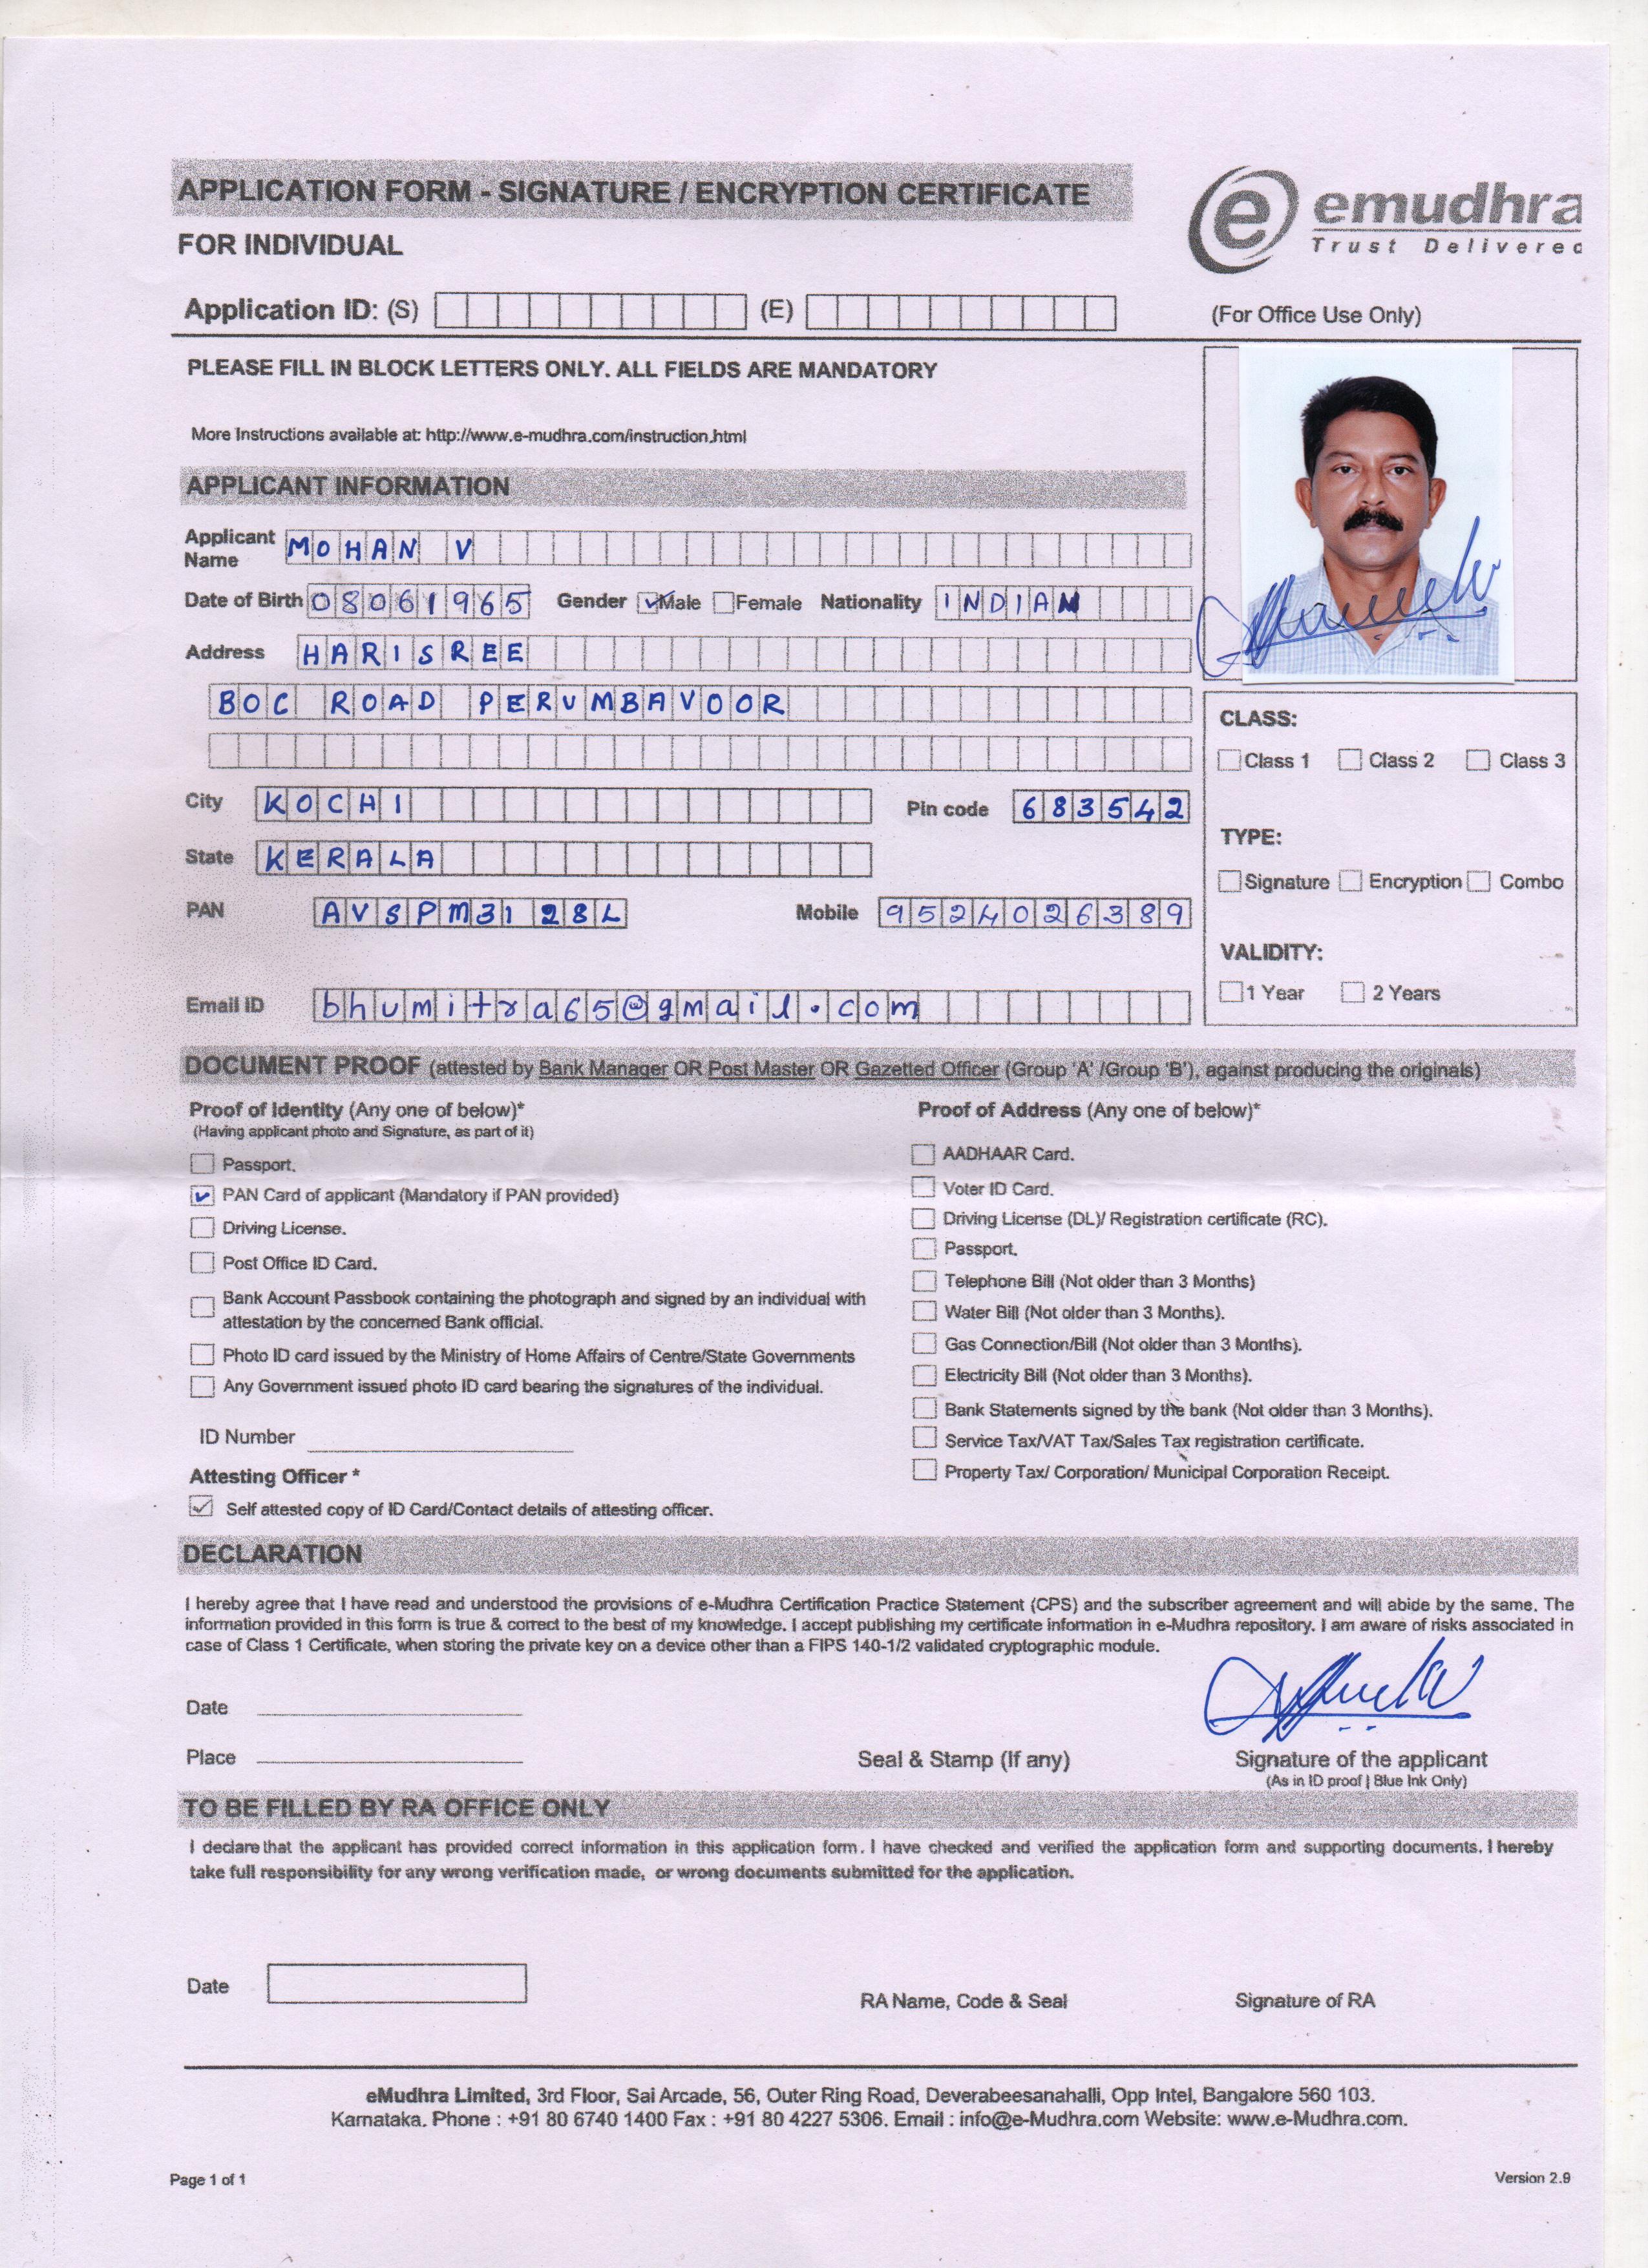 APPLICATION FORM - SIGNATURE / ENCRYPTION CERTIFICATE
FOR INDIVIDUAL
emudhra
Trust Delivered
Application ID: (S) (E) (For Office Use Only)
PLEASE FILL IN BLOCK LETTERS ONLY. ALL FIELDS ARE MANDATORY
More Instructions available at: http://www.e-mudhra.com/instruction.html
APPLICANT INFORMATION
Applicant Name MOHAN V
Date of Birth 08061965 Gender Male Female Nationality INDIAN
Address HARISREE
BOC ROAD PERUMBAVOOR
City KOCHI Pin code 683542
State KERALA
PAN AVSPM3128L Mobile 9524026389
Email ID bhumitra65@gmail.com
CLASS:
Class 1 Class 2 Class 3
TYPE:
Signature Encryption Combo
VALIDITY:
1 Year 2 Years
DOCUMENT PROOF (attested by Bank Manager OR Post Master OR Gazetted Officer (Group 'A' /Group 'B'), against producing the originals)
Proof of Identity (Any one of below)*
(Having applicant photo and Signature, as part of it)
Passport.
PAN Card of applicant (Mandatory if PAN provided)
Driving License.
Post Office ID Card.
Bank Account Passbook containing the photograph and signed by an individual with
attestation by the concerned Bank official.
Photo ID card issued by the Ministry of Home Affairs of Centre/State Governments
Any Government issued photo ID card bearing the signatures of the individual.
ID Number
Attesting Officer *
Self attested copy of ID Card/Contact details of attesting officer.
Proof of Address (Any one of below)*
AADHAAR Card.
Voter ID Card.
Driving License (DL)/ Registration certificate (RC).
Passport.
Telephone Bill (Not older than 3 Months)
Water Bill (Not older than 3 Months).
Gas Connection/Bill (Not older than 3 Months).
Electricity Bill (Not older than 3 Months).
Bank Statements signed by the bank (Not older than 3 Months).
Service Tax/VAT Tax/Sales Tax registration certificate.
Property Tax/ Corporation/ Municipal Corporation Receipt.
DECLARATION
I hereby agree that I have read and understood the provisions of e-Mudhra Certification Practice Statement (CPS) and the subscriber agreement and will abide by the same. The
information provided in this form is true & correct to the best of my knowledge. I accept publishing my certificate information in e-Mudhra repository. I am aware of risks associated in
case of Class 1 Certificate, when storing the private key on a device other than a FIPS 140-1/2 validated cryptographic module.
Date
Place Seal & Stamp (If any) Signature of the applicant
(As in ID proof | Blue Ink Only)
TO BE FILLED BY RA OFFICE ONLY
I declare that the applicant has provided correct information in this application form. I have checked and verified the application form and supporting documents. I hereby
take full responsibility for any wrong verification made, or wrong documents submitted for the application.
Date RA Name, Code & Seal Signature of RA
eMudhra Limited, 3rd Floor, Sai Arcade, 56, Outer Ring Road, Deverabeesanahalli, Opp Intel, Bangalore 560 103.
Karnataka. Phone : +91 80 6740 1400 Fax : +91 80 4227 5306. Email : info@e-Mudhra.com Website: www.e-Mudhra.com.
Page 1 of 1 Version 2.9